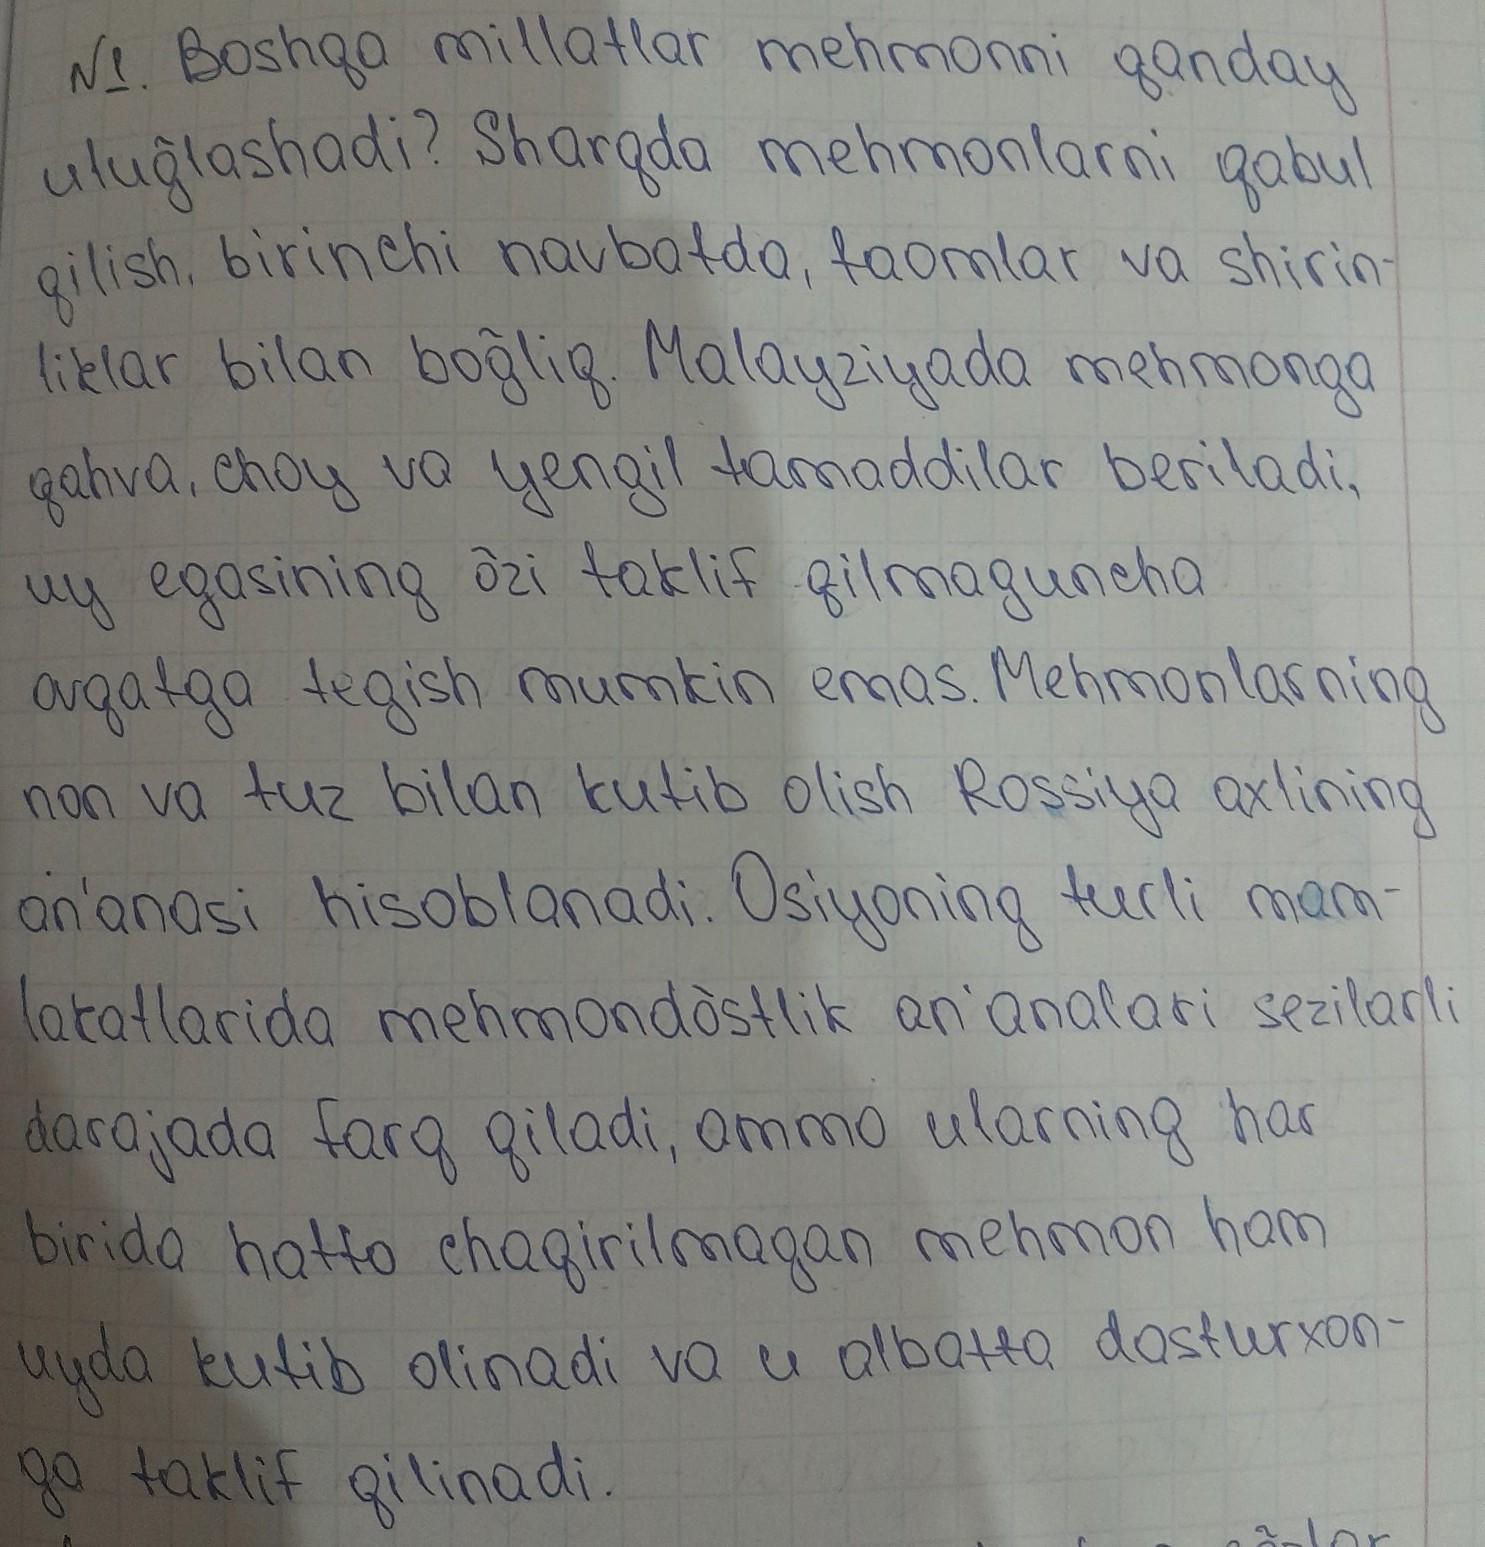 №1. Boshqa millatlar mehmonni qanday
uluğlashadi? Sharqda mehmonlarni qabul
qilish, birinchi navbatda, taomlar va shirin-
liklar bilan boğliq. Malayziyada mehmonga
qahva, choy va yengil tamaddilar beriladi,
uy egasining õzi taklif qilmaguncha
ovqatga tegish mumkin emas. Mehmonlarning
non va tuz bilan kutib olish Rossiya axlining
an'anasi hisoblanadi. Osiyoning turli mam-
lakatlarida mehmondòstlik an'analari sezilarli
darajada farq qiladi, ammo ularning har
birida hatto chaqirilmagan mehmon ham
uyda kutib olinadi va u albatta dasturxon-
ga taklif qilinadi.